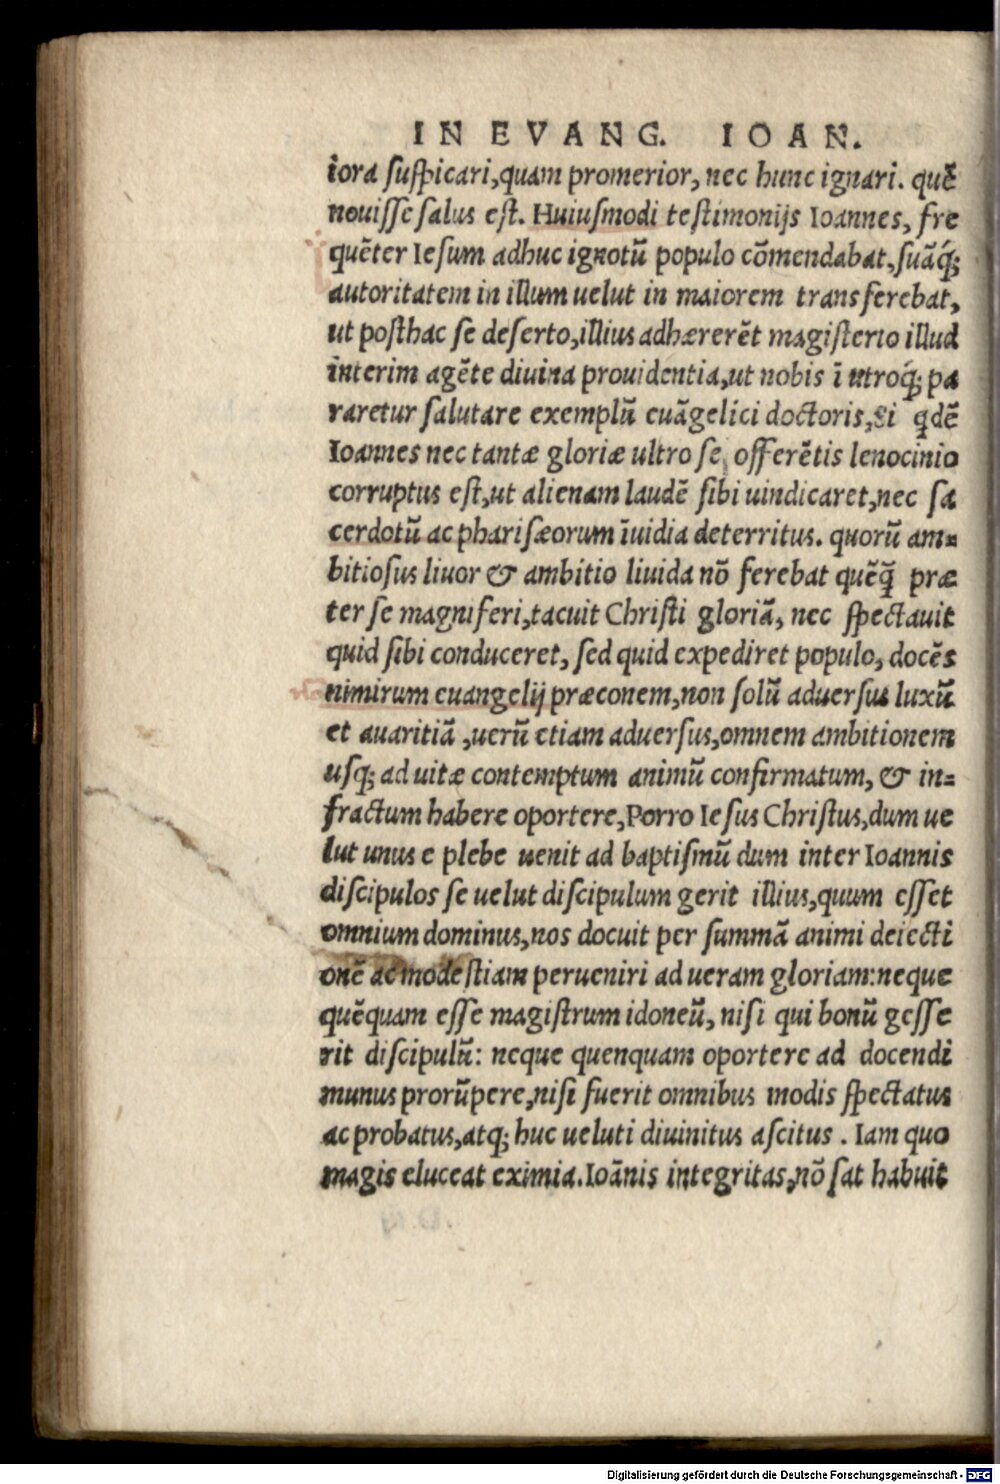 IN EVANG. IOAN.
iora ſuſpicari,quam promerior, nec hunc ignari. quẽ
nouiſſe ſalus eſt. Huiuſmodi teſtimonijs Ioannes, fre
quẽter Ieſum adhuc ignotũ populo cõmendabat,ſuãq́;
autoritatem in illum uelut in maiorem transferebat,
ut poſthac ſe deſerto,illius adhærerẽt magiſterio illud
interim agẽte diuina prouidentia,ut nobis ĩ utroq́; pa
raretur ſalutare exemplũ euãgelici doctoris,Si q̃dẽ
Ioannes nec tantæ gloriæ ultro ſe offerẽtis lenocinio
corruptus eſt,ut alienam laudẽ ſibi uindicaret,nec ſa
cerdotũ ac phariſæorum ĩuidia deterritus. quorũ am=
bitioſus liuor & ambitio liuida nõ ferebat quẽq̃ præ
ter ſe magnifieri,tacuit Chriſti gloriã, nec ſpectauit
quid ſibi conduceret, ſed quid expediret populo, docẽs
nimirum euangelij præconem,non ſolũ aduerſus luxũ
et auaritiã ,uerũ etiam aduerſus,omnem ambitionem
uſq; ad uitæ contemptum animũ confirmatum, & in=
fractum habere oportere,Porro Ieſus Chriſtus,dum ue
lut unus e plebe uenit ad baptiſmũ dum inter Ioannis
diſcipulos ſe uelut diſcipulum gerit illius,quum eſſet
omnium dominus,nos docuit per ſummã animi deiecti
onẽ ac modeſtiam perueniri ad ueram gloriam:neque
quẽquam eſſe magiſtrum idoneũ, niſi qui bonũ geſſe
rit diſcipulũ: neque quenquam oportere ad docendi
munus prorũpere,niſi fuerit omnibus modis ſpectatus
ac probatus,atq; huc ueluti diuinitus aſcitus . Iam quo
magis eluceat eximia.Ioãnis integritas,nõ ſat habuit
Digitalisierung gefördert durch die Deutsche Forschungsgemeinschaft - DFG